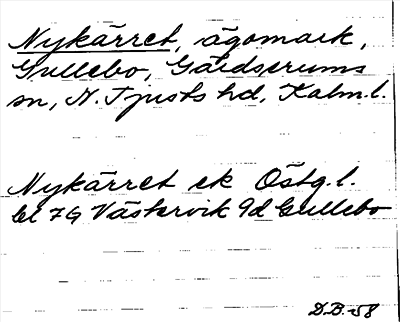 Nykärret, ägomark,
Gullebo, Gärdserums
sn, N. Tjusts hd, Kalm.l.
Nykärret ek Östg.l.
bl 7G Västervik 9d Gullebo
D.B. -58